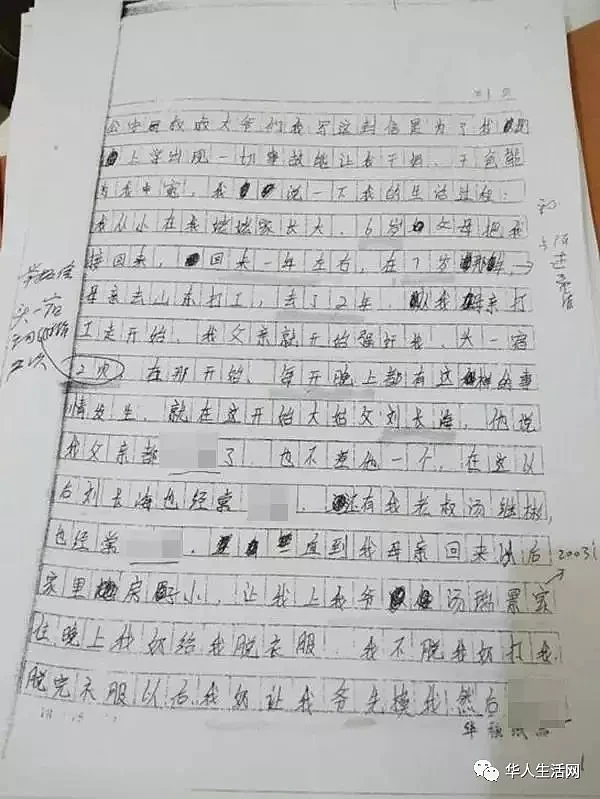 公安局叔叔大爷们我写这封信是为了我
上学出现一切事故能让我干妈、干爸能
为我申冤，我说一下我的生活过程：
我从小在我姥姥家长大，6岁父母把我
接回来，回来一年左右，在7岁那年，
母亲去山东打工，去了2年，从我母亲打
工走开始，我父亲就开始强奸我，头一宿
2次，在那开始，每天晚上都有这样的事
情发生，就在这开始大姑父刘长海，他说
我父亲都了，也不差他一个，在这以
后刘长海也经常，还有我老叔汤继彬，
也经常，一直到我母亲回来以后
家里房子小，让我上我爷汤瑞景家
住晚上我奶给我脱衣服，我不脱我奶打我，
脱完衣服以后我奶让我爷先摸我然后
头一宿
2次
2003
华人生活网